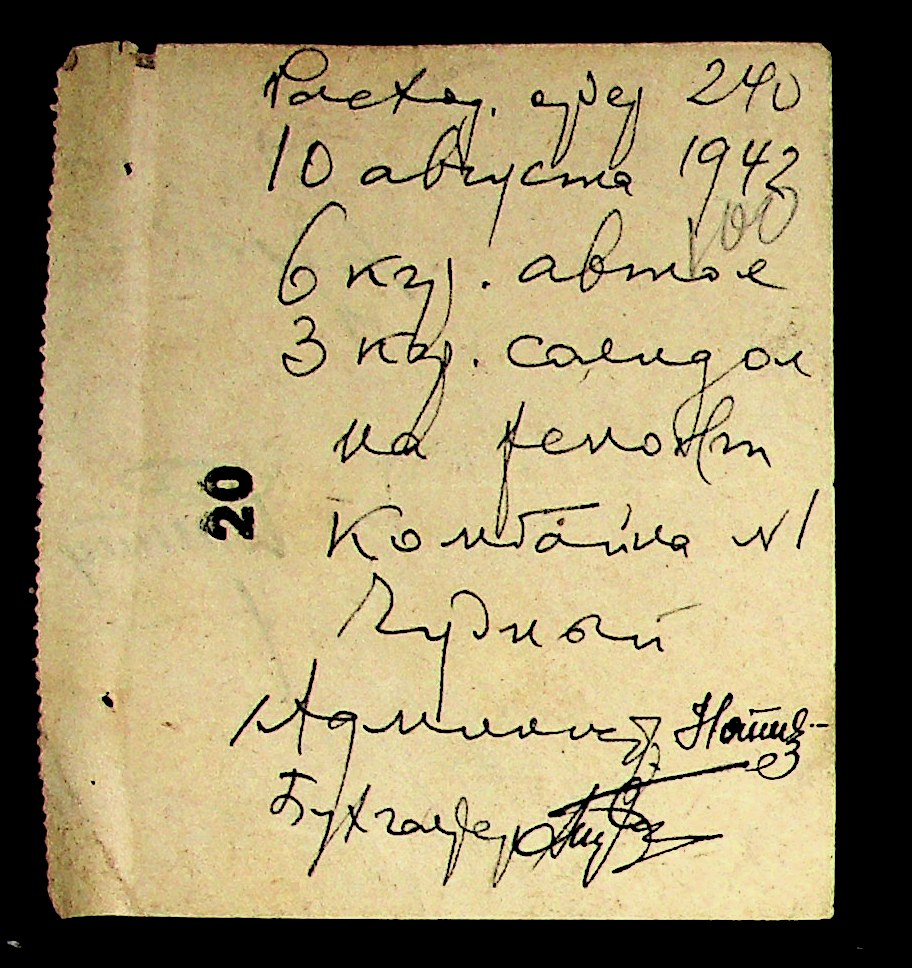 Расход. орд 240
10 августа 1942
100
6 кгр. автол
3 кгр. солидол
на ремонт
Комбайна №1
Чудный
Администр.
Бухгалтер
20